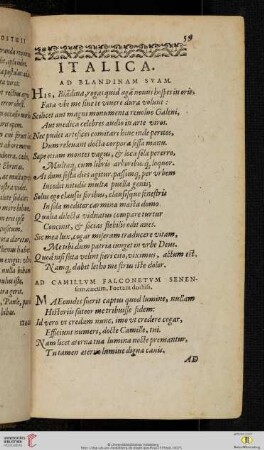 59
ITALICA.
AD BLANDINAM SVAM.
HIs, Blãdina, rogas quid agã nouus hospes in oris,
Fata vbi me sine te viuere dura volunt:
Scilicet aut magni monumenta reuoluo Galeni,
Aut medica celebres audio in arte viros.
Nec pudet artifices comitari hunc inde peritos,
Dum releuant docta corpora fessa manu.
Sæpe etiam montes vagus, & loca sola pererro,
Multaq, cum libris arboribusq, loquor.
At dum festa dies agitur, passimq, per vrbem
Incedit nitidis multa puella genis;
Solus ego clausis foribus, clausisq fenestris
In sola meditor carmina mœsta domo.
Qualia dilecta viduatus compare turtur
Concinit, & socias flebilis edit aues.
Sic mea lux, cogor miseram traducere vitam,
Me tibi dum patria iungat in vrbe Deus.
Quod nisi fata velint fieri cito, viximus, actum est.
Namq, dabit letho me ferus iste dolor.
AD CAMILLVM FALCONETVM SENEN-
sem cæcum, Poetam doctiss.
MAEonides fuerit captus quod lumine, nullam
Historiis fueror me tribuisse fidem:
Id vero vt credam nunc, imo vt credere cogar,
Efficiunt numeri, docte Camille, tui.
Nam licet æterna tua lumina nocte premantur,
Tu tamen æterno lumine digna canis.
AD